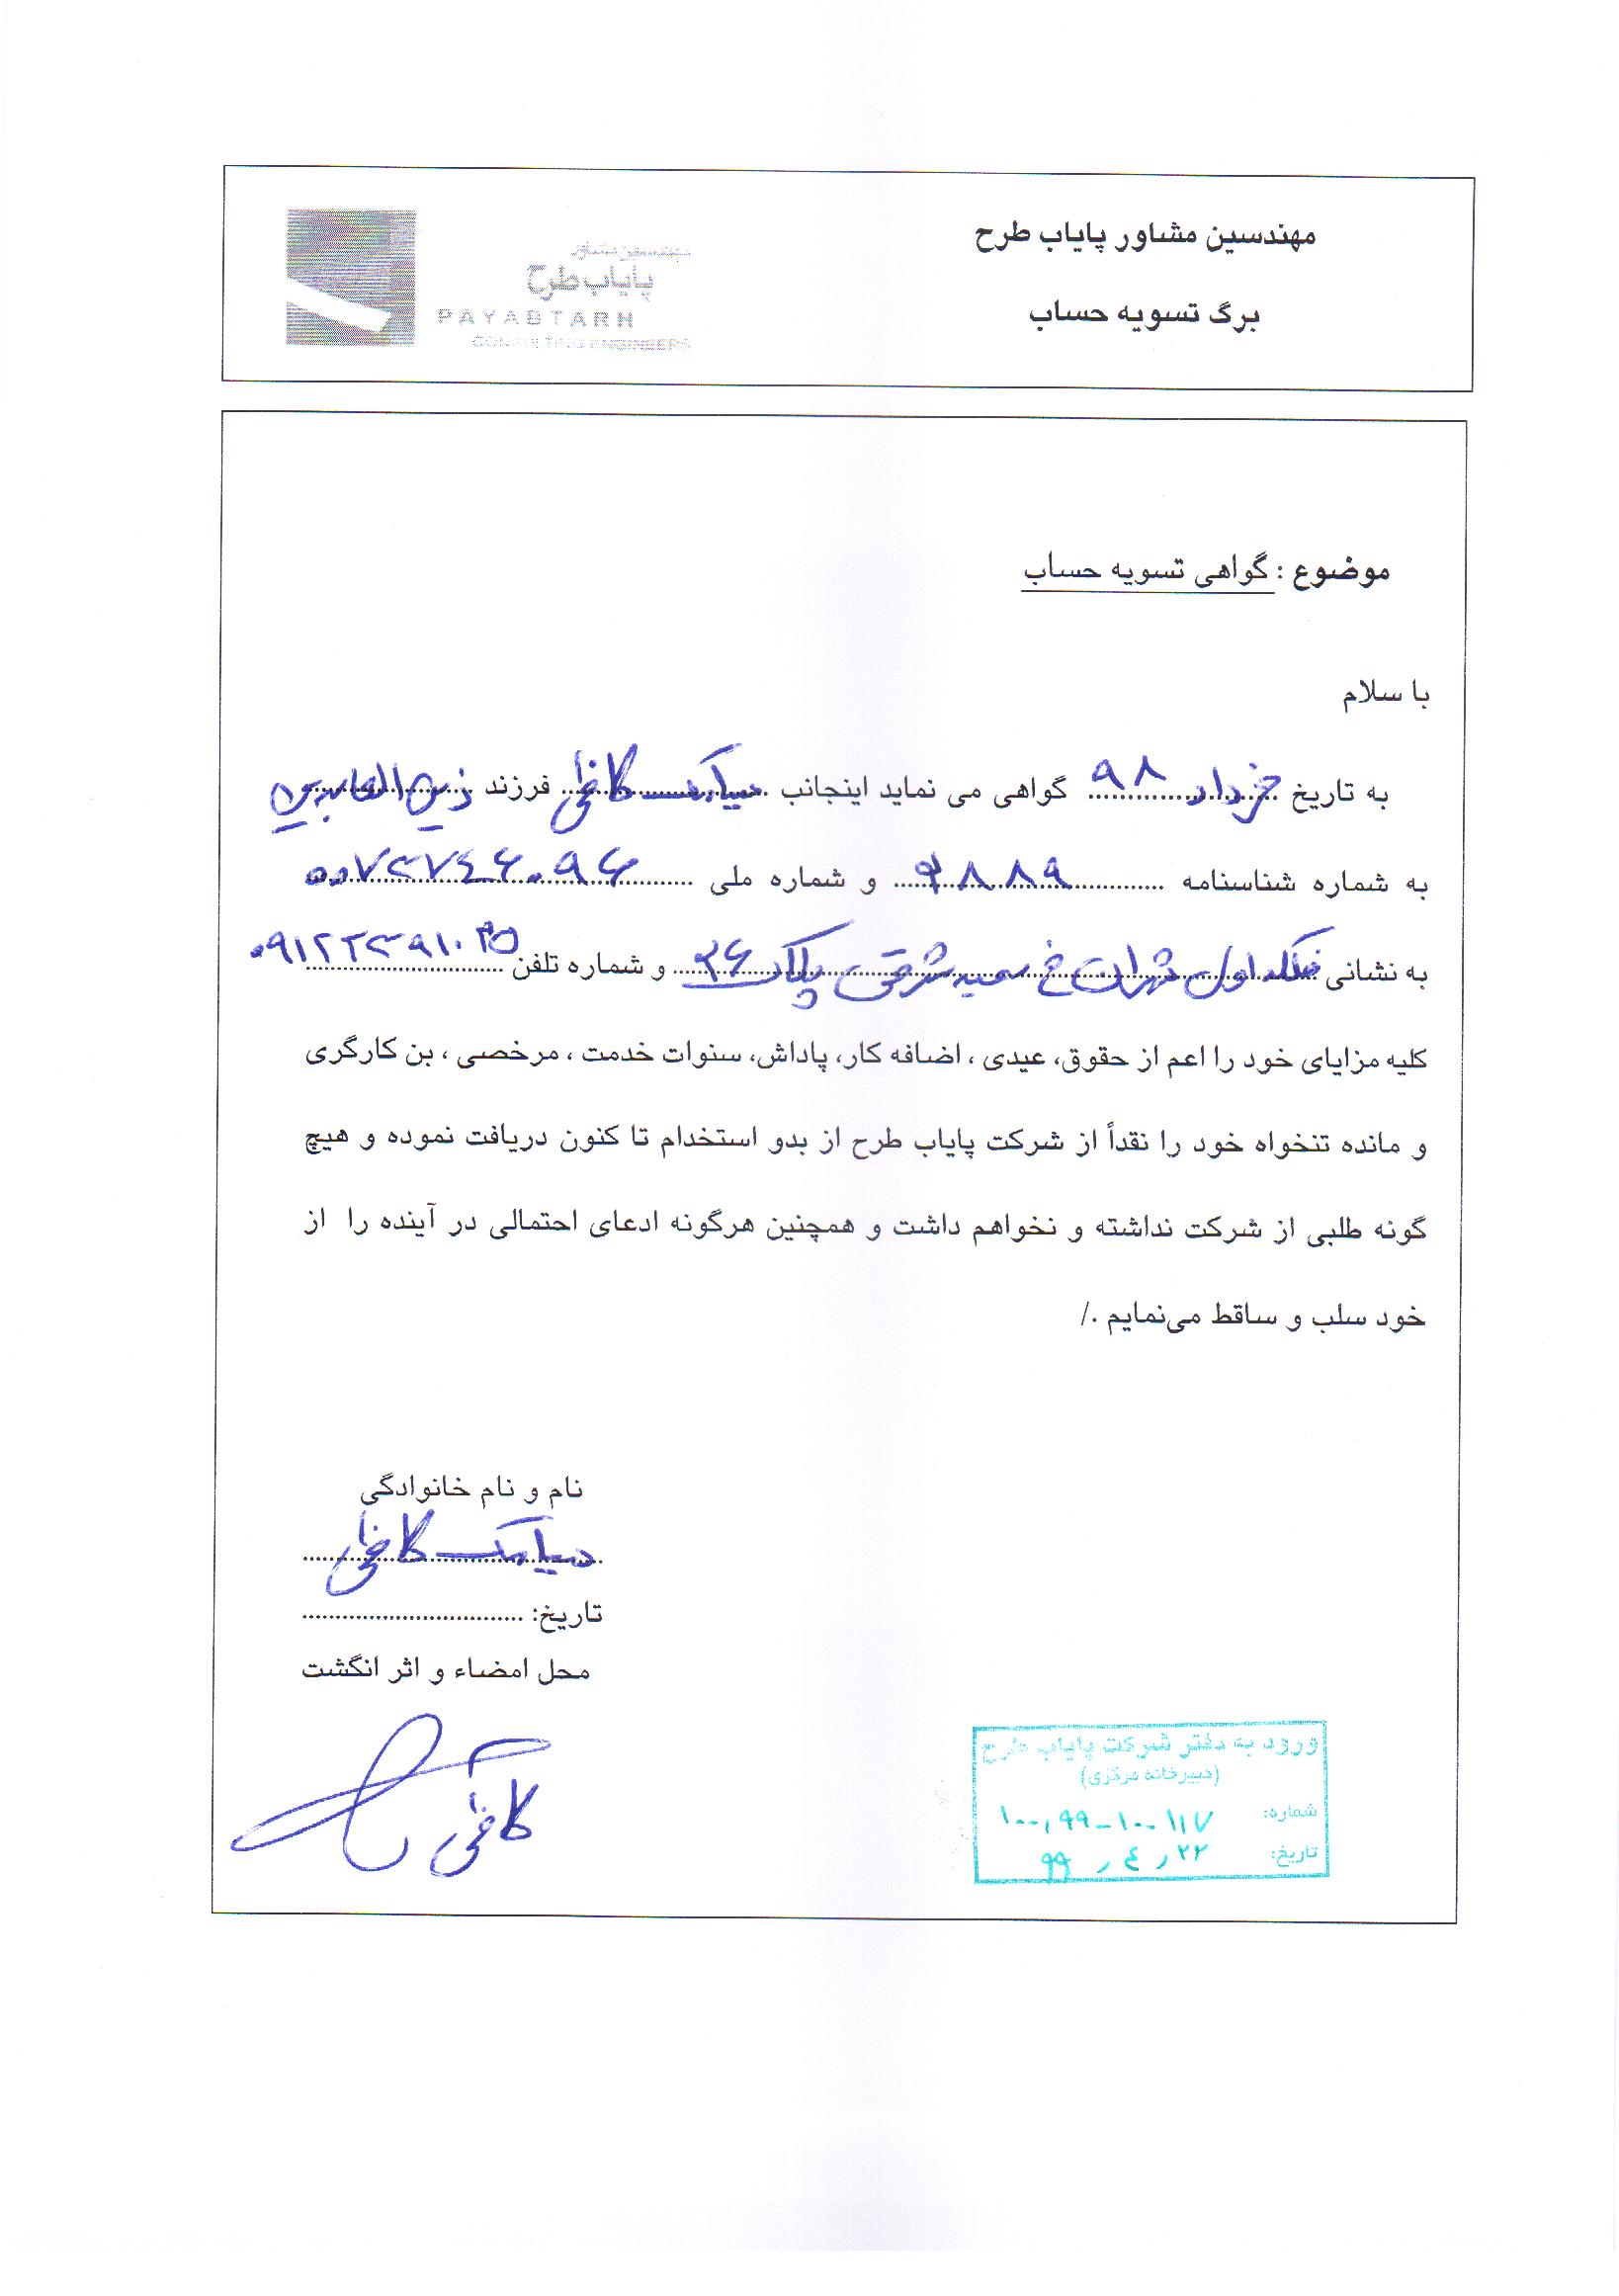 مهندسین مشاور پایاب طرح
برگ تسویه حساب
مهندسین مشاور
پایاب طرح
PAYABTARH
CONSULTING ENGINEERS
موضوع : گواهی تسویه حساب
با سلام
به تاریخ خرداد ۹۸ گواهی می نماید اینجانب سیامک کاظمی فرزند زین العابدین
به شماره شناسنامه ۲۸۸۹ و شماره ملی ۰۰۷۳۷۴۶۰۹۶
به نشانی فلکه اول تهران خ سمیه شرقی پلاک ۳۶ و شماره تلفن
کلیه مزایای خود را اعم از حقوق، عیدی ، اضافه کار، پاداش، سنوات خدمت ، مرخصی ، بن کارگری
و مانده تنخواه خود را نقداً از شرکت پایاب طرح از بدو استخدام تا کنون دریافت نموده و هیچ
گونه طلبی از شرکت نداشته و نخواهم داشت و همچنین هرگونه ادعای احتمالی در آینده را از
خود سلب و ساقط می‌نمایم ./
نام و نام خانوادگی
سیامک کاظمی
تاریخ: ................................
محل امضاء و اثر انگشت
کاظمی
ورود به دفتر شرکت پایاب طرح
(دبیرخانه مرکزی)
شماره: ۱۰۰,۹۹-۱۰۰۱۱۷
تاریخ: ۹۹ , ۴ , ۲۲